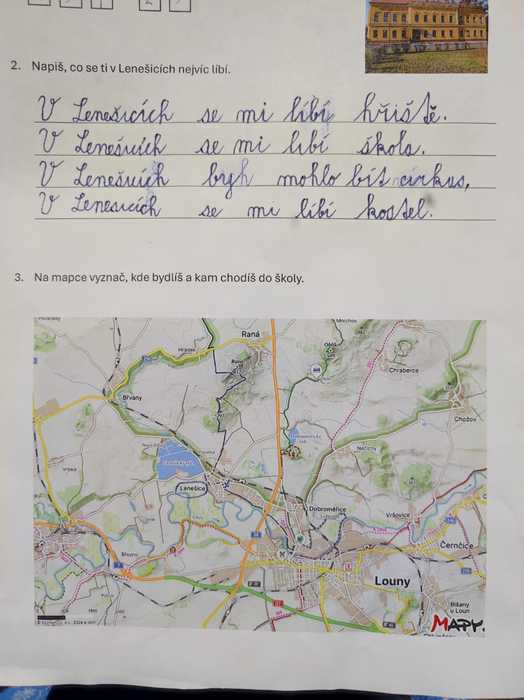 2. Napiš, co se ti v Lenešicích nejvíc líbí.
V Lenešicích se mi líbí hřiště.
V Lenešicích se mi líbí škola.
V Lenešicích bych mohlo bít cirkus,
V Lenesicích se mi líbí kostel.
3. Na mapce vyznač, kde bydlíš a kam chodíš do školy.
Raná
Hrádek
Oblík
Chraberce
Břvany
Chožov
Nečichy
Lenešice
Dobroměřice
Vršovice
Černčice
Březno
Louny
Blšany
u Loun
MAPY.